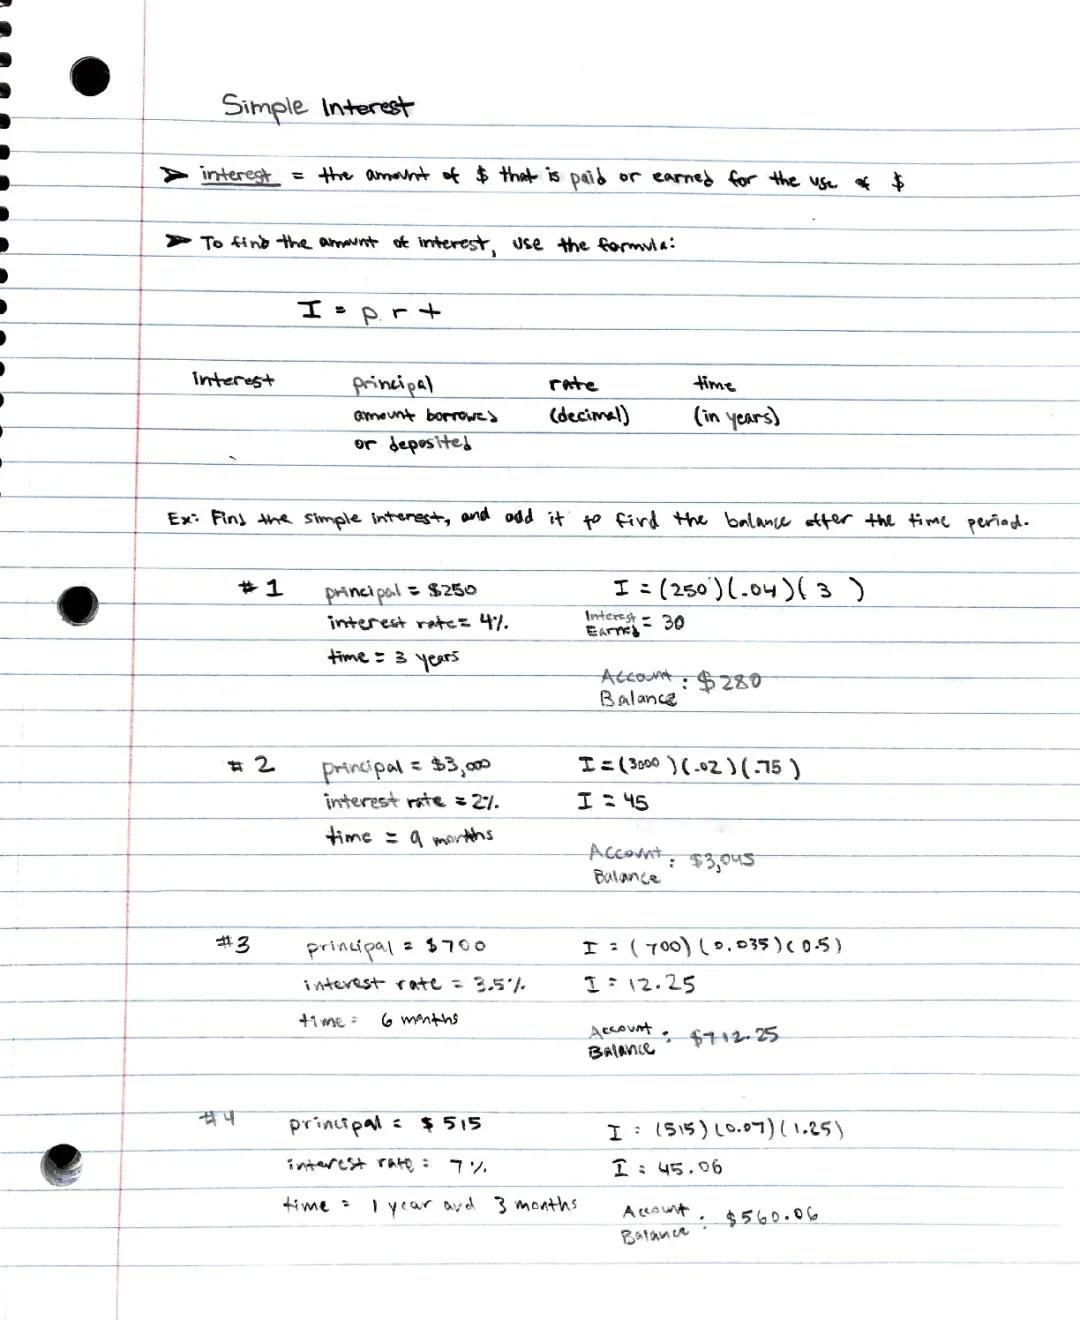 Simple Interest
➤ interest = the amount of $ that is paid or earned for the use of $
➤ To find the amount of interest, use the formula:
I = p r t
interest principal rate time
amount borrowed (decimal) (in years)
or deposited
Ex: Find the simple interest, and add it to find the balance after the time period.
#1 principal = $250 I = (250)(.04)(3)
interest rate = 4% Interest Earned = 30
time = 3 years
Account Balance : $280
#2 principal = $3,000 I = (3000)(.02)(.75)
interest rate = 2% I = 45
time = 9 months
Account Balance : $3,045
#3 principal = $700 I = (700)(0.035)(0.5)
interest rate = 3.5% I = 12.25
time = 6 months
Account Balance : $712.25
#4 principal = $515 I = (515)(0.07)(1.25)
interest rate = 7% I = 45.06
time = 1 year and 3 months
Account Balance : $560.06